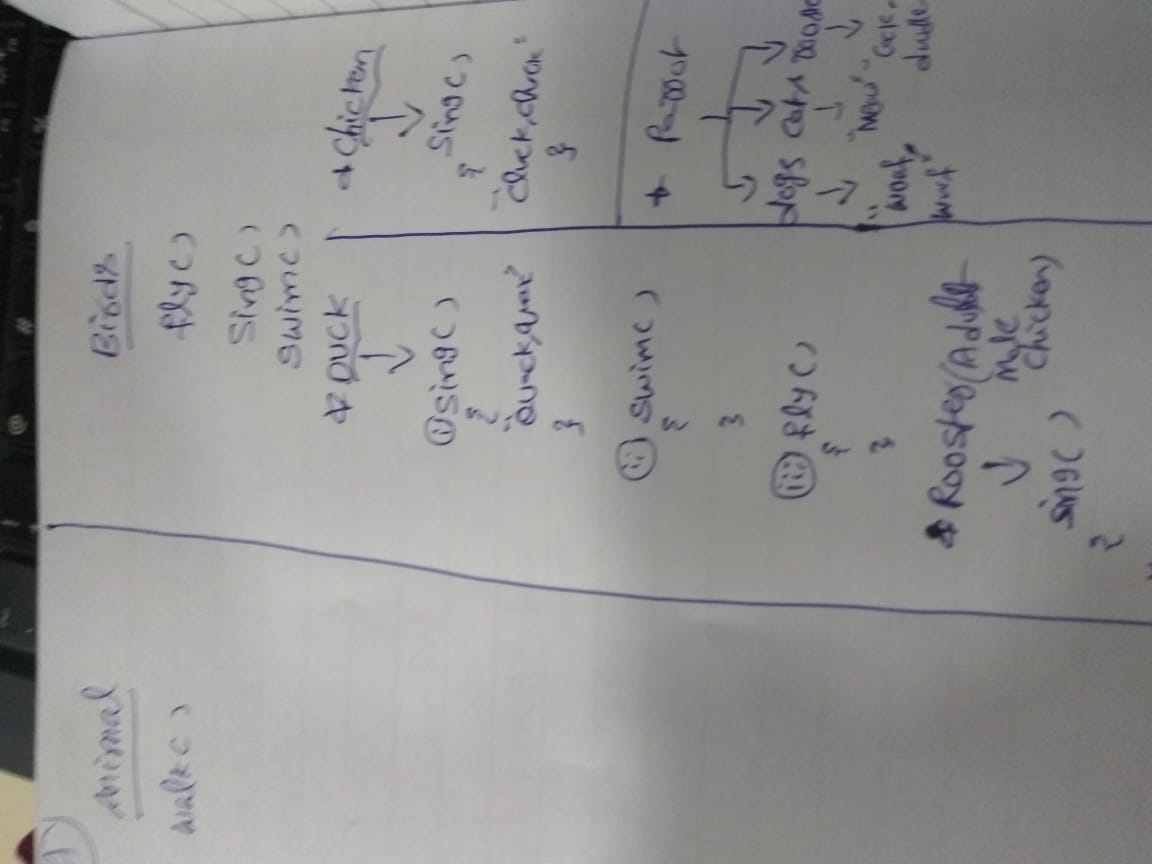 Animal
walk()
Birds
fly()
sing()
swim()
* DUCK
↓
(i) sing()
{
"Quack, quack"
}
(ii) swim()
{
}
(iii) fly()
{
}
* Rooster (Adult
Male
chicken)
↓
sing()
{
* Chicken
↓
sing()
{
"cluck, cluck"
}
* Parrot
dogs cats
↓ ↓ ↓
"woof, "Meow" "Cock
woof"